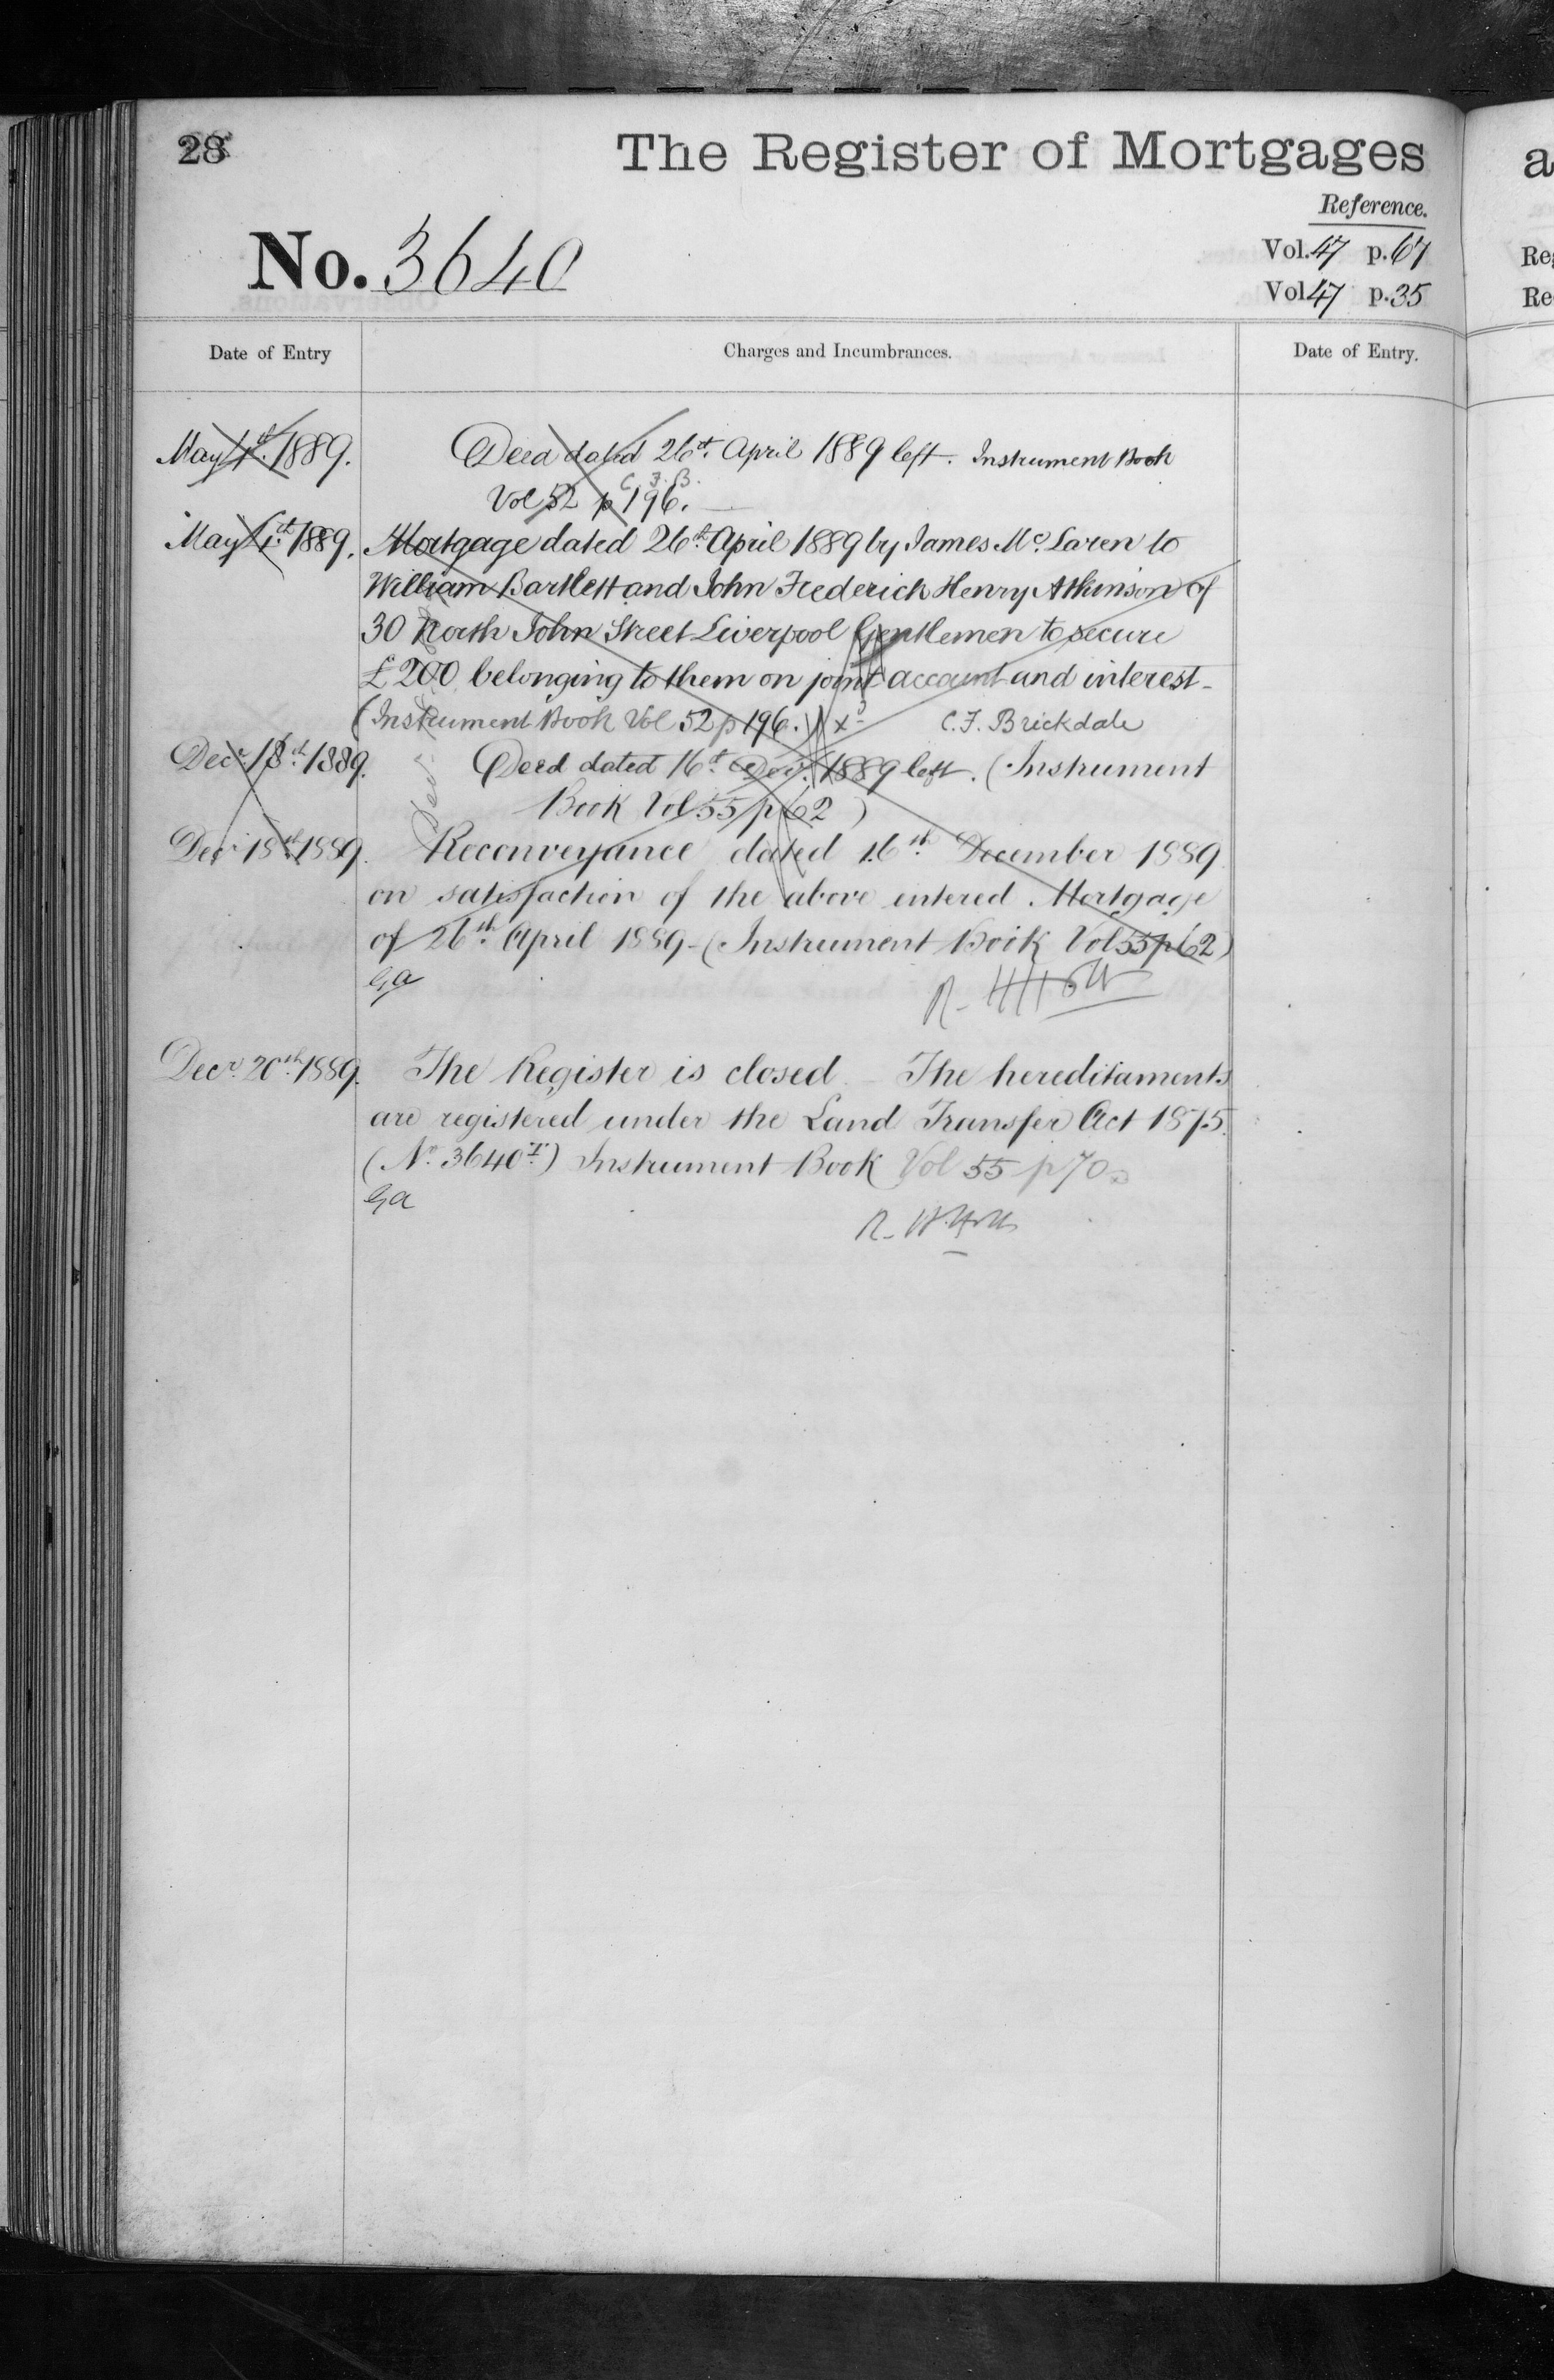 28
The Register of Mortgages
Reference.
No. 3640
Vol. 47 p. 67
Vol 47 p. 35
Date of Entry
Charges and Incumbrances.
Date of Entry.
May 1st. 1889. Deed dated 26th April 1889 left. Instrument Book
C. F. B.
Vol 52 p 196.
May 1st 1889. Mortgage dated 26th April 1889 by James Mc. Laren to
William Bartlett and John Frederick Henry Atkinson of
30 North John Street Liverpool Gentlemen to secure
£200 belonging to them on joint account and interest -
(Instrument Book Vol 52 p 196.) C. F. Brickdale
Decr. 18th 1889. Deed dated 16th Decr. 1889 left. (Instrument
Book Vol 55 p 62)
Decr. 18th 1889. Reconveyance dated 16th December 1889
on satisfaction of the above entered Mortgage
of 26th April 1889 - (Instrument Book Vol 55 p 62)
Ga
Decr. 20th 1889. The Register is closed - The hereditaments
are registered under the Land Transfer Act 1875.
(No. 3640 T) Instrument Book Vol 55 p 70
Ga
a
Re
Re